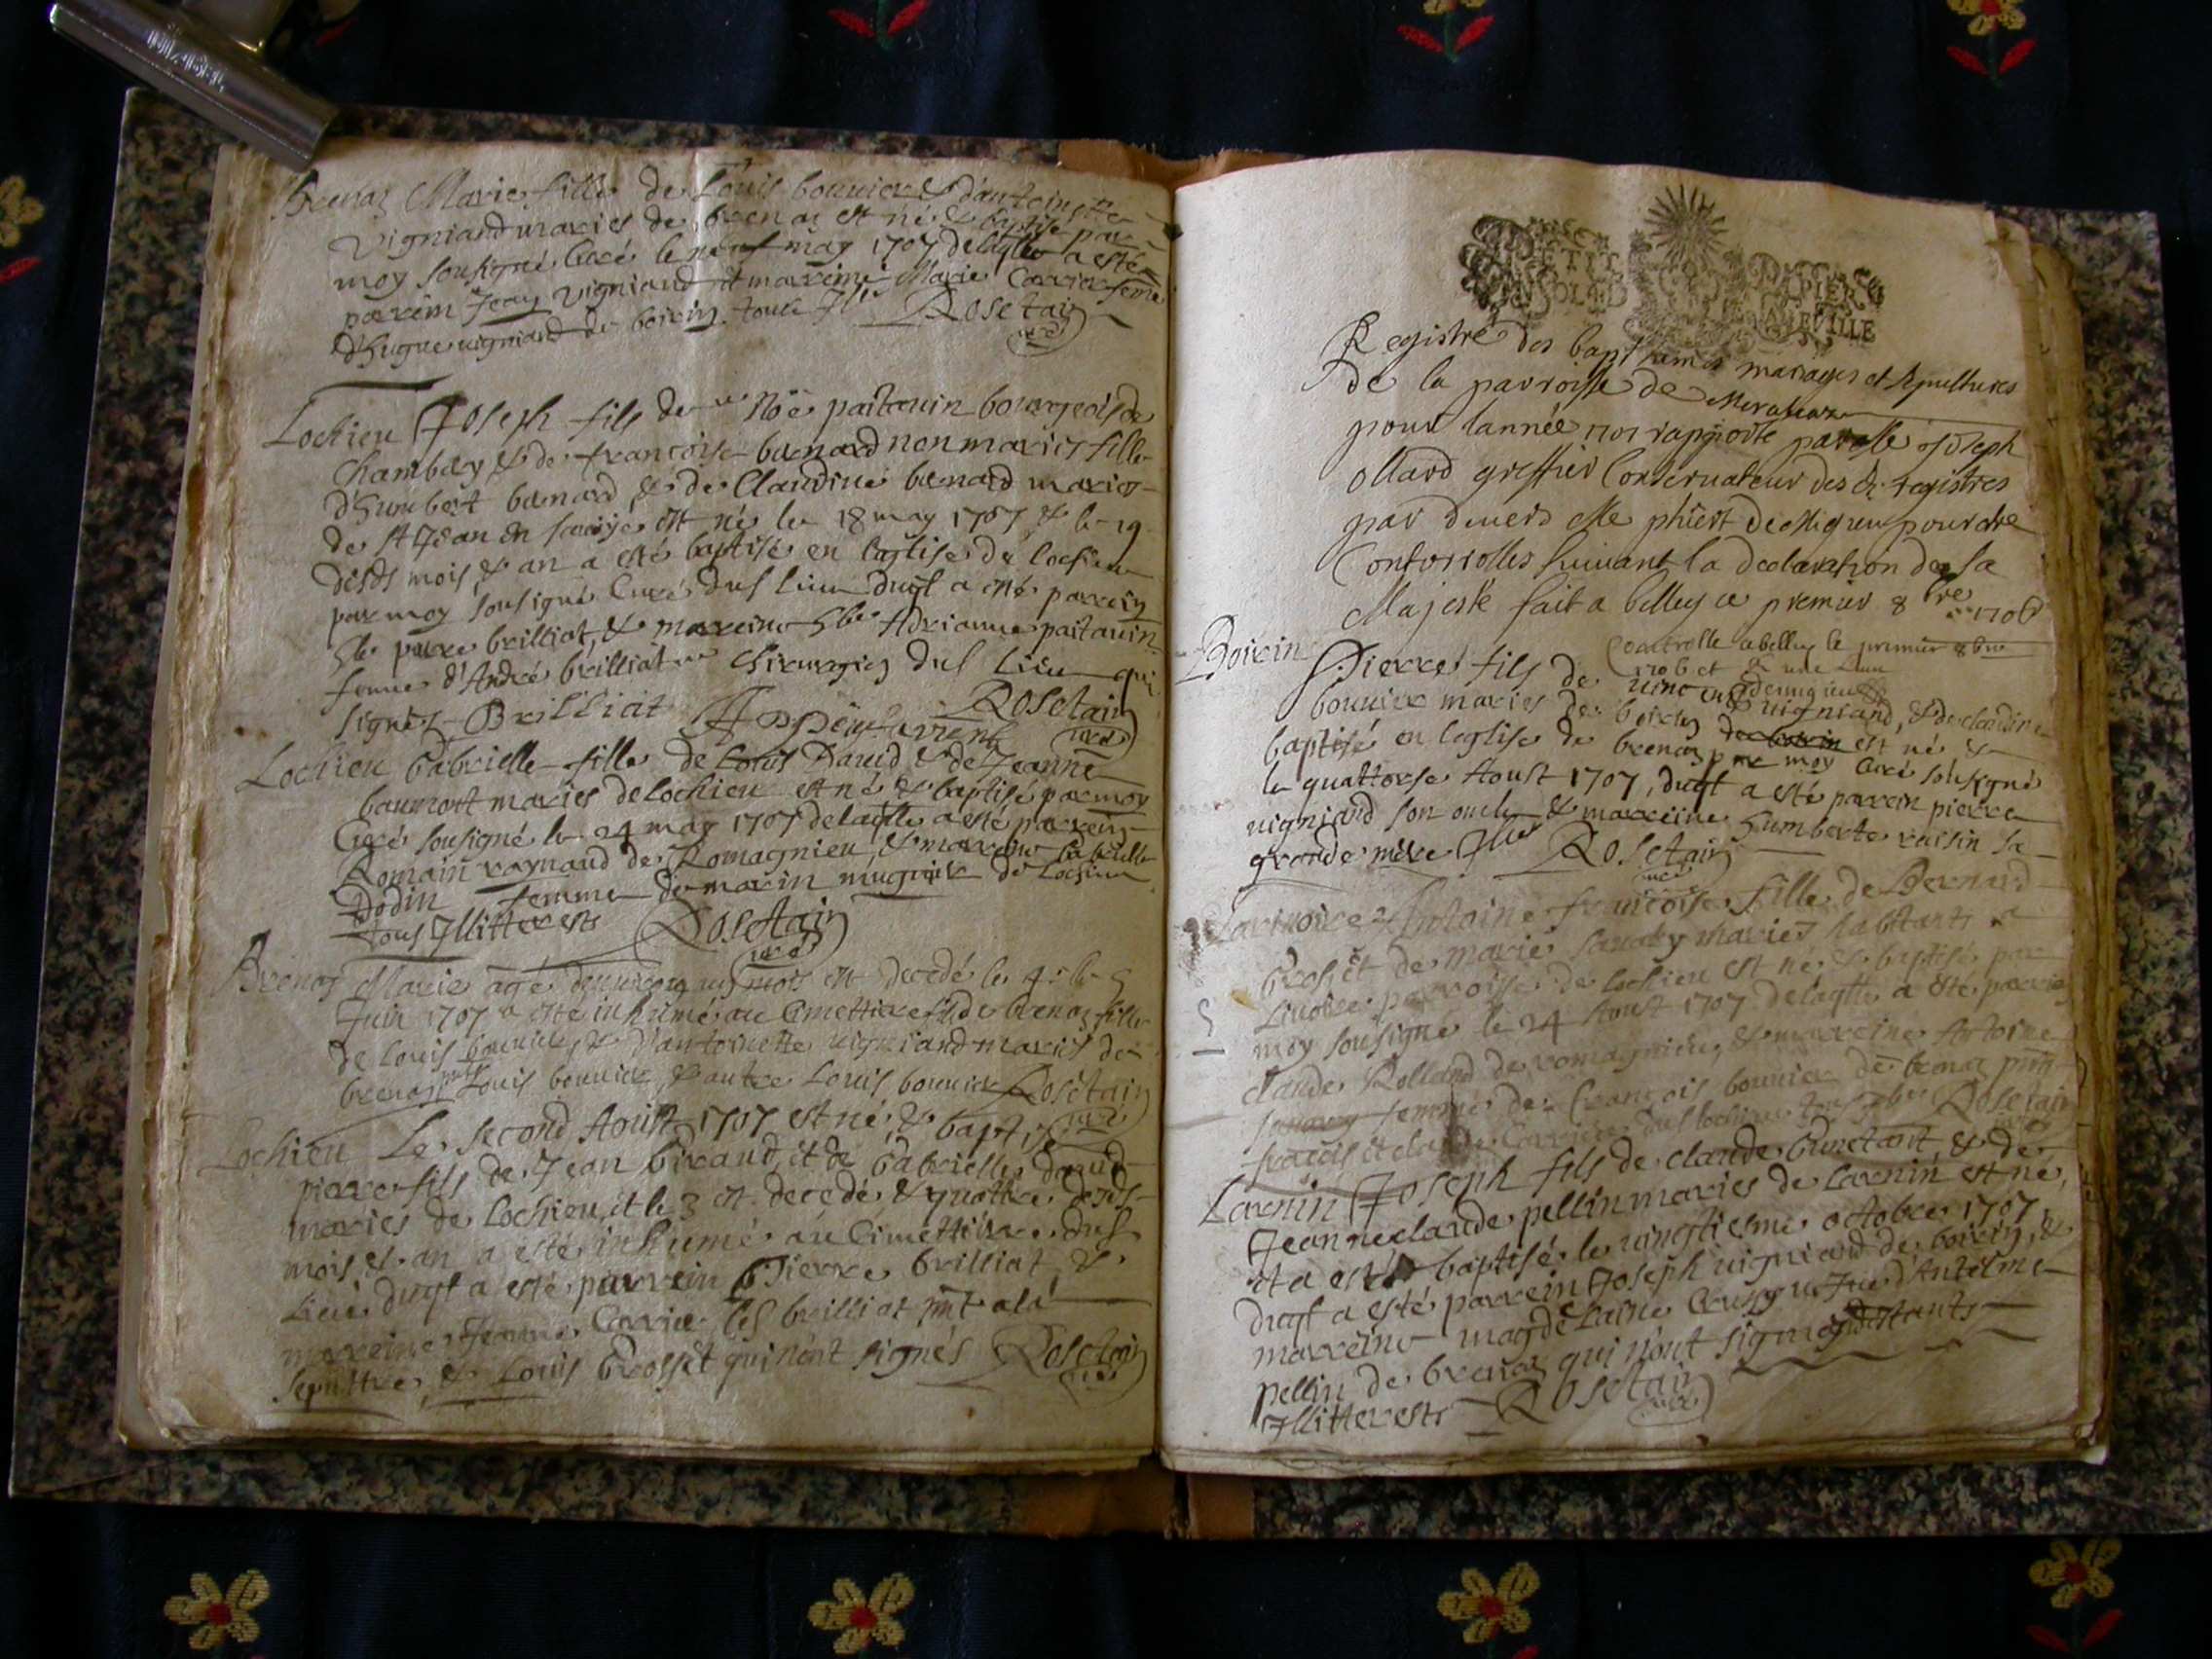 Brenaz Marie fille de Louis bouvier & d'antoinette
Vigniand maries de brenaz est né & baptisé par
moy sousigné Curé le neuf may 1707 de laqlle a esté
parrein Jean Vigniand et marreine Marie Carrier feme
d'hugue vigniand de boirin tous
Rosetain
curé
Lochieu Joseph fils de Noë paitauin bourgeois de
Chambery & de francoise barnard non maries fille
d'humbert barnard & de Claudine barnard maries
de St Jean en sauoÿe est né le 18 may 1707 & le 19
desds mois & an a esté baptisé en leglise de lochieu
par moy sousigné Curé dud lieu duql a esté parrein
brilliat, & marreine Adrianne paitauin
femme d'André brilliat Chirurgien dud Lieu qui
signés Brilliat
Rosetain
curé
Lochieu Gabrielle fille de Louis Dauid & de Jeanne
baumont maries de Lochieu est né & baptisé par moy
Curé sousigné le 24 may 1707 de laqlle a esté parrein
Romain raynaud de Romagnieu, & marreine Gabrielle
Dodin femme de marin mugnier de Lochieu
tous Jllitterests
Rosetain
curé
Brenaz Marie agé mois est decedé le 4 & le 5
Juin 1707 a esté inhumé au Cimettiere de brenaz fille
de Louis bouuier & d'antoinette vigniand maries de
brenaz Louis bouuier, & autre Louis bouuier Rosetain
curé
Lochieu Le second Aoust 1707 est né & baptisé
pierre fils de Jean Giraud, et de Gabrielle Dauid
maries de Lochieu, et le 3 est decedé & quattre desds
mois & an a esté inhumé au Cimettiere dud
Lieu duql a esté parrein Pierre brilliat &
marreine Jeanne Carrier brilliat a la
sepulttre, & Louis Grosset qui n'ont signés Rosetain
curé
PETIT PAPIER
Registre des baptesmes mariages et sepultures
de la parroisse de
pour l'année 1707 rapporté par Me Joseph
ollard greffier Conseruateur des registres
par deuers Me de Migieu pour estre
Controrolles suiuant la declaration de sa
Majesté fait a belley ce premier 8bre 1706
Controllé a belley le premier 8bre
1706 et
Boirin Pierre fils de vigniand, & de claudine
bouuier maries de boirin est né &
baptisé en leglise de brenaz par moy Curé sousigné
le quattorse Aoust 1707, duql a esté parrein pierre
vigniand son oncle & marreine humberte raisin sa
grande mere
Rosetain
curé
Antoine francoise fille de Bernard
Gros, et de marie maries habittants a
parroisse de lochieu est né & baptisé par
moy sousigné le 24 Aoust 1707 de laqlle a esté parrein
claude Rolland de romagnieu, & marreine Antoine
femme de francois bouuier de brenaz
francois et claude Rosetain
Larnin Joseph fils de claude & de
Jeanne claude pellin maries de Larnin est né,
et a esté baptisé le vingtiesme octobre 1707,
duql a esté parrein Joseph vigniand de boirin, &
marreine magdelaine d'Antelme
pellin de brenaz qui n'ont signés
Jllitterests
Rosetain
curé